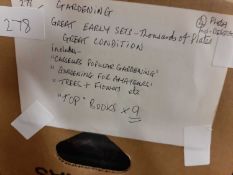 278
GARDENING
278
GREAT EARLY SETS - Thousands of Plates
GREAT CONDITION
includes
"CASSELLS POPULAR GARDENING"
"GARDENING FOR AMATEURS"
"TREES + FLOWERS etc
"TOP" BOOKS x 9